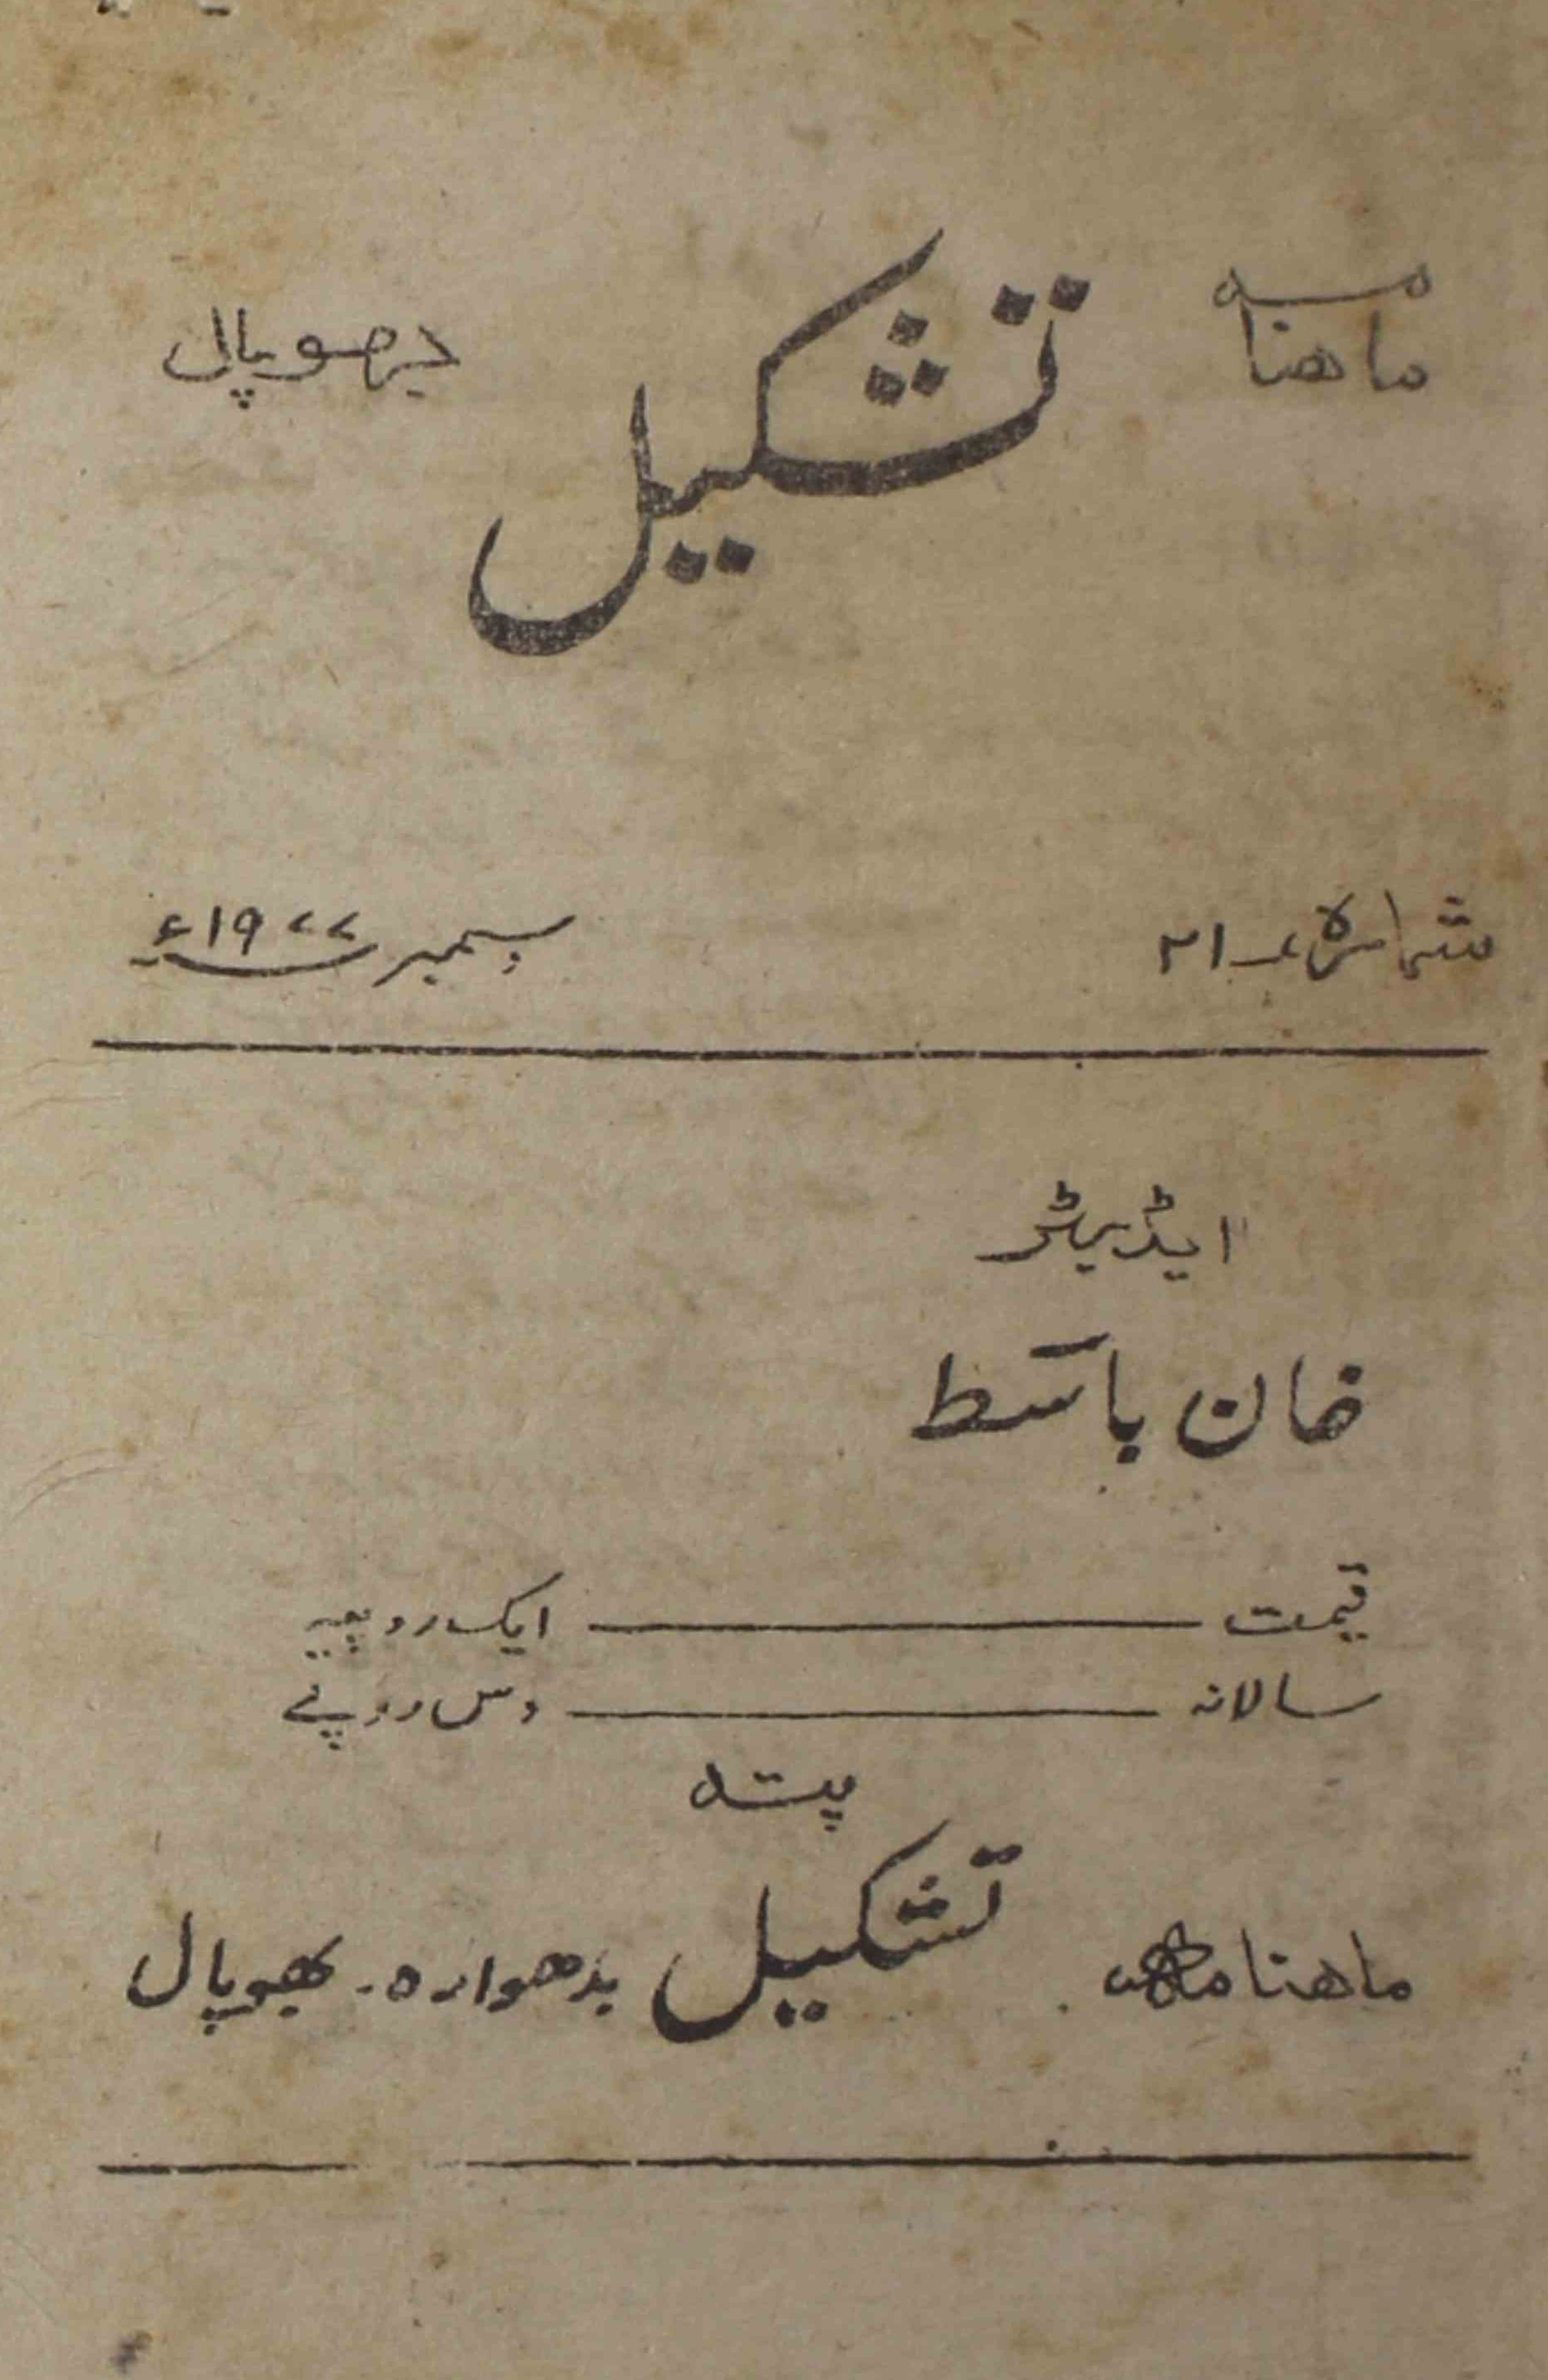 ماهنامه تشکیل بھوپال
شمارہ ۲۱ دسمبر ۱۹۷۷ء
ایڈیٹر
خان باسط
قیمت ــــــ ایک روپیہ
سالانہ ــــــ دس روپئے
پتہ
ماهنامہ تشکیل بدھوارہ۔ بھوپال